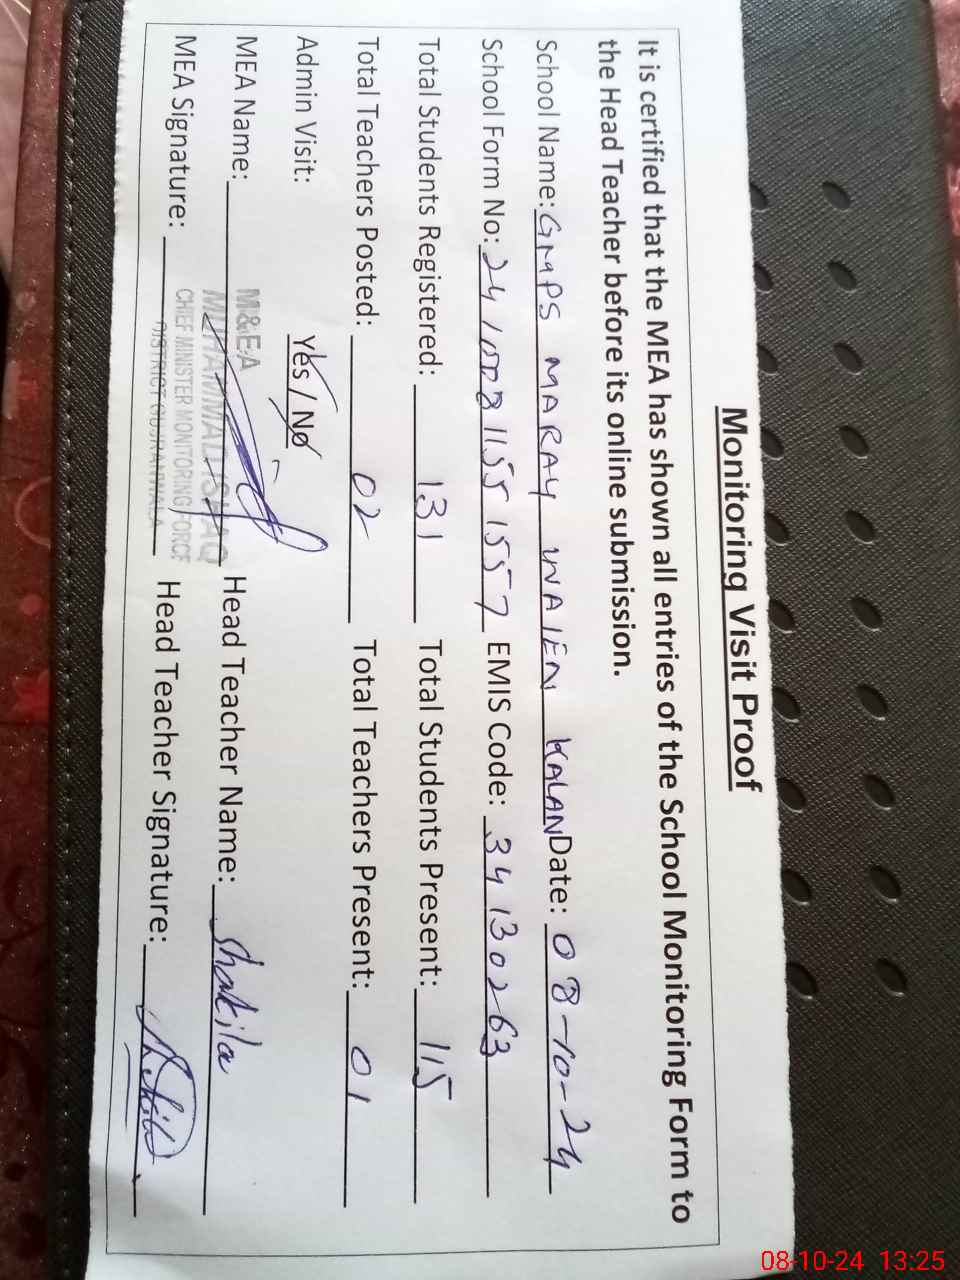 Monitoring Visit Proof
It is certified that the MEA has shown all entries of the School Monitoring Form to
the Head Teacher before its online submission.
School Name: GMPS MARAY WAIEN KALAN Date: 08-10-24
School Form No: 241008 1155 1557 EMIS Code: 34130263
Total Students Registered: 131 Total Students Present: 115
Total Teachers Posted: 02 Total Teachers Present: 01
Admin Visit: Yes / No
M&E.A
MEA Name: MUHAMMAD ISHAQ Head Teacher Name: Shakila
CHIEF MINISTER MONITORING FORCE
MEA Signature: DISTRICT GUJRANWALA Head Teacher Signature: Shakila
08-10-24 13:25